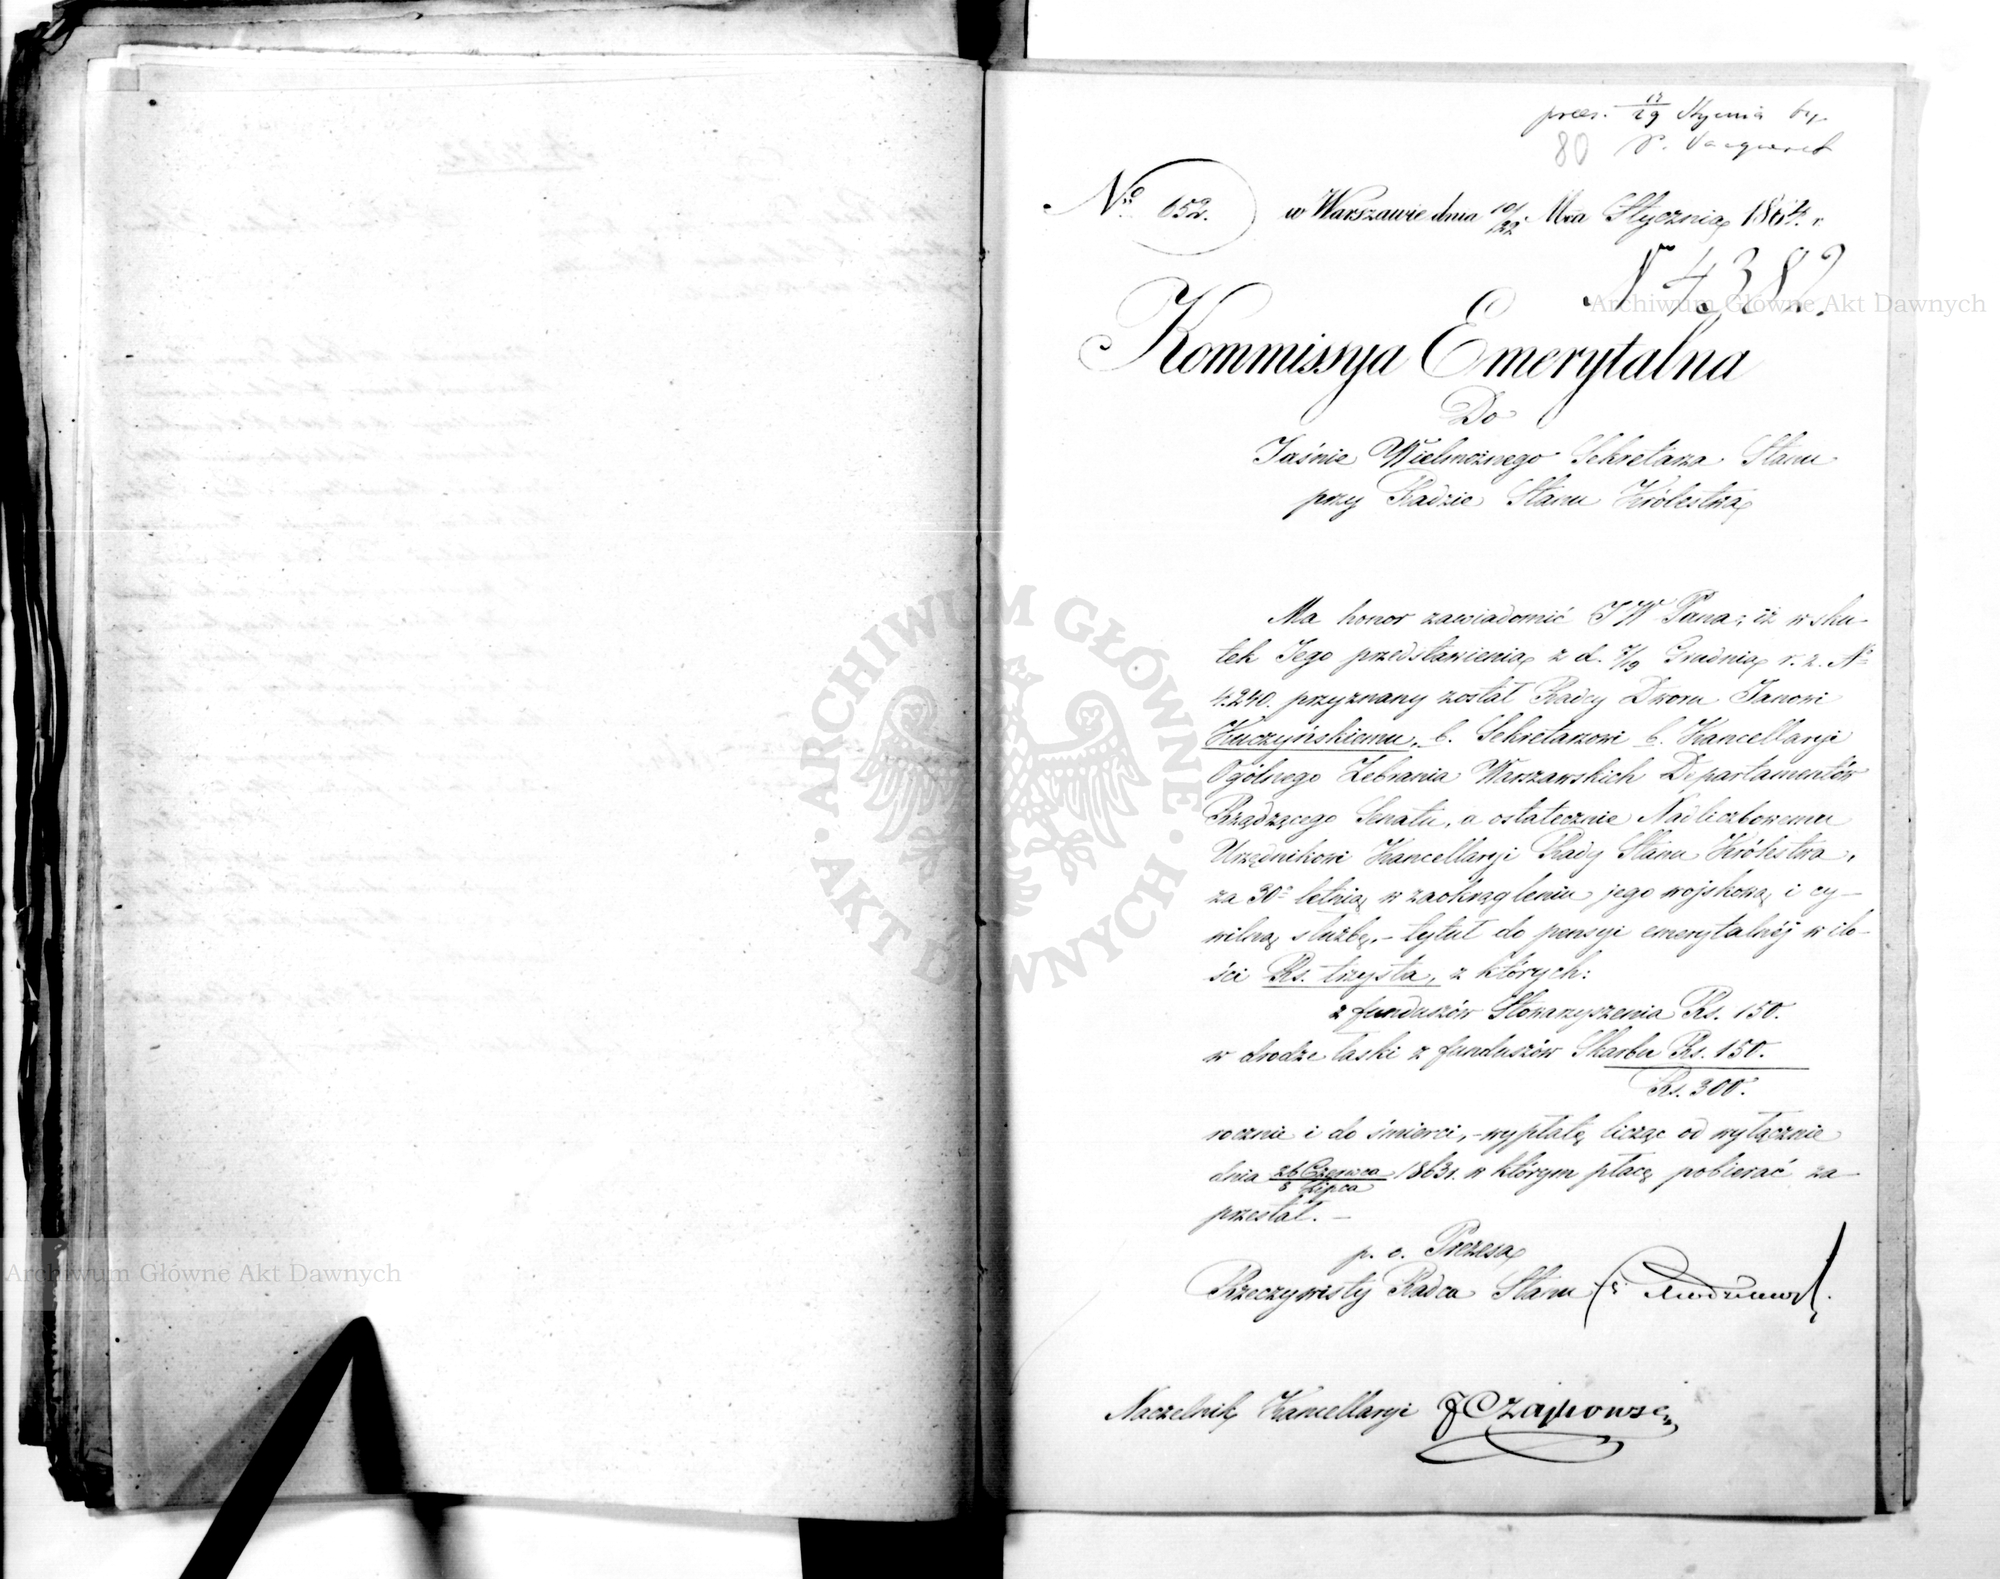 prez. 17/29 Stycznia
80
No. 652. w Warszawie dnia 10/22 Mca Stycznia 1864 r.
N 4382.
Kommissya Emerytalna
Do
Jaśnie Wielmożnego Sekretarza Stanu
przy Radzie Stanu Królestwa
Ma honor zawiadomić JW Pana, iż w sku-
tek Jego przedstawienia z d. 7/19 Grudnia r. z. No
4240. przyznany został Radcy Dworu Janowi
Kuczyńskiemu, b. Sekretarzowi b. Kancellaryi
Ogólnego Zebrania Warszawskich Departamentów
Rządzącego Senatu, a ostatecznie Nadliczbowemu
Urzędnikowi Kancellaryi Rady Stanu Królestwa,
za 30o letnią w zaokrągleniu jego wojskową i cy-
wilną służbę, - tytuł do pensyi emerytalnéj w ilo-
ści Rs. trzysta, z których:
z funduszów Stowarzyszenia Rs. 150.
w drodze łaski z funduszów Skarbu Rs. 150.
Rs. 300.
rocznie i do śmierci, - wypłatę licząc od wyłącznie
dnia 26 Czerwca / 8 Lipca 1863 r. w którym płacę pobierać za-
przestał. -
p. o. Prezesa
Rzeczywisty Radca Stanu
Naczelnik Kancellaryi J Czajkowski
Archiwum Główne Akt Dawnych
ARCHIWUM GŁÓWNE · AKT DAWNYCH ·
Archiwum Główne Akt Dawnych